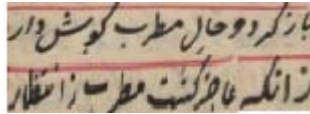 باز گرد و حال مطرب گوش دار
زانکه عاجز گشت مطرب ز انتظار